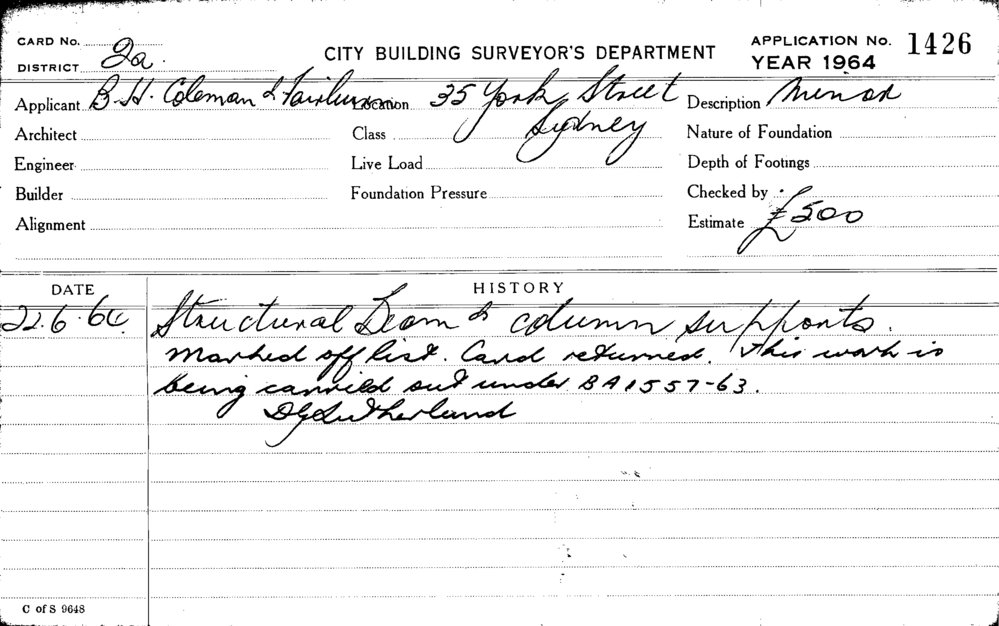 CARD No.
DISTRICT 2a.
CITY BUILDING SURVEYOR'S DEPARTMENT
APPLICATION No. 1426
YEAR 1964
Applicant B.H. Coleman & Fairburn Location 35 York Street Description Minor
Sydney
Architect Class Nature of Foundation
Engineer Live Load Depth of Footings
Builder Foundation Pressure Checked by
Alignment Estimate £500
DATE HISTORY
22.6.66. Structural Beam & column supports.
Marked off list. Card returned. This work is
being carried out under BA1557-63.
DG Sutherland
C of S 9648